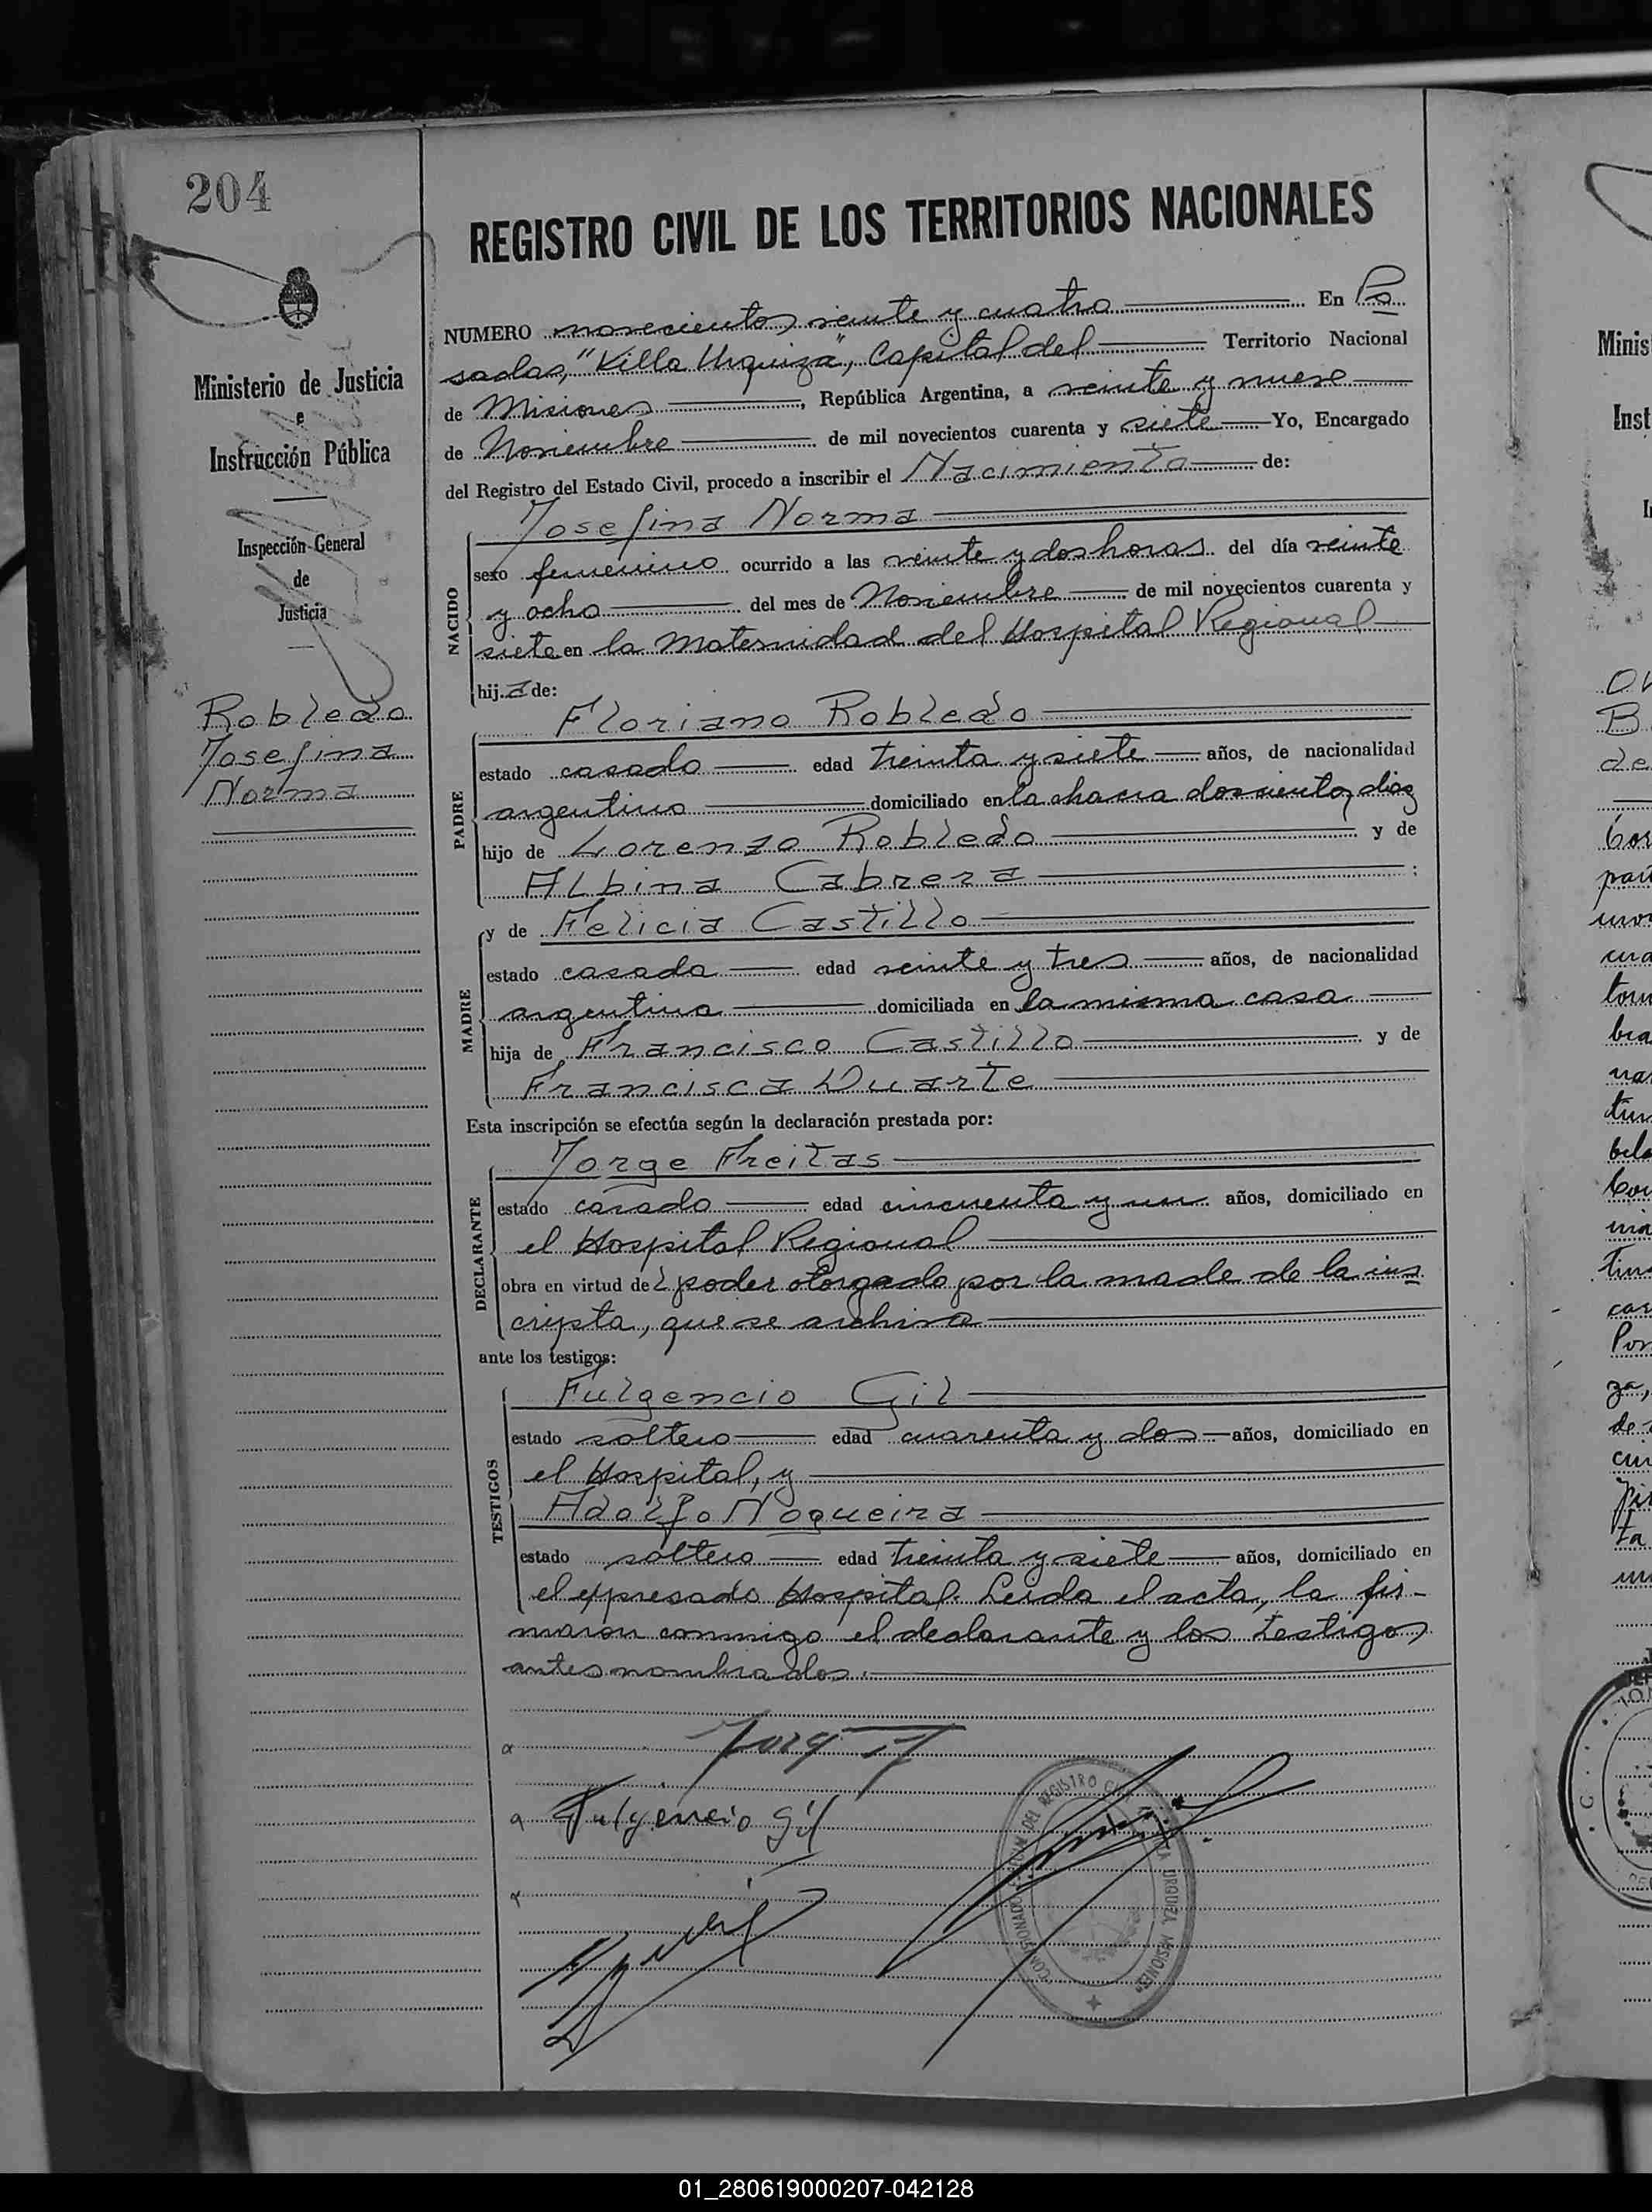 204
REGISTRO CIVIL DE LOS TERRITORIOS NACIONALES
Ministerio de Justicia
e
Instrucción Pública
Inspección General
de
Justicia
Robledo
Josefina
Norma
NUMERO novecientos veinte y cuatro En Po
sadas, "Villa Urquiza", Capital del Territorio Nacional
de Misiones, República Argentina, a veinte y nueve
de Noviembre de mil novecientos cuarenta y siete Yo, Encargado
del Registro del Estado Civil, procedo a inscribir el Nacimiento de:
Josefina Norma
NACIDO
sexo femenino ocurrido a las veinte y dos horas del día veinte
y ocho del mes de Noviembre de mil novecientos cuarenta y
siete en la Maternidad del Hospital Regional
hija de:
Floriano Robledo
PADRE
estado casado edad treinta y siete años, de nacionalidad
argentino domiciliado en la chacra doscientos diez
hijo de Lorenzo Robledo y de
Albina Cabrera ;
y de Felicia Castillo
MADRE
estado casada edad veinte y tres años, de nacionalidad
argentina domiciliada en la misma casa
hija de Francisco Castillo y de
Francisca Duarte
Esta inscripción se efectúa según la declaración prestada por:
Jorge Freitas
DECLARANTE
estado casado edad cincuenta y un años, domiciliado en
el Hospital Regional
obra en virtud del poder otorgado por la madre de la ins
cripta, que se archiva
ante los testigos:
Fulgencio Gil
TESTIGOS
estado soltero edad cuarenta y dos años, domiciliado en
el Hospital, y
Adolfo Noqueira
estado soltero edad treinta y siete años, domiciliado en
el expresado Hospital. Leida el acta, la fir-
maron conmigo el declarante y los testigos
antes nombrados.
Fulgencio Gil
COMISIONADO DEL REGISTRO CIVIL VILLA URQUIZA MISIONES
01_280619000207-042128